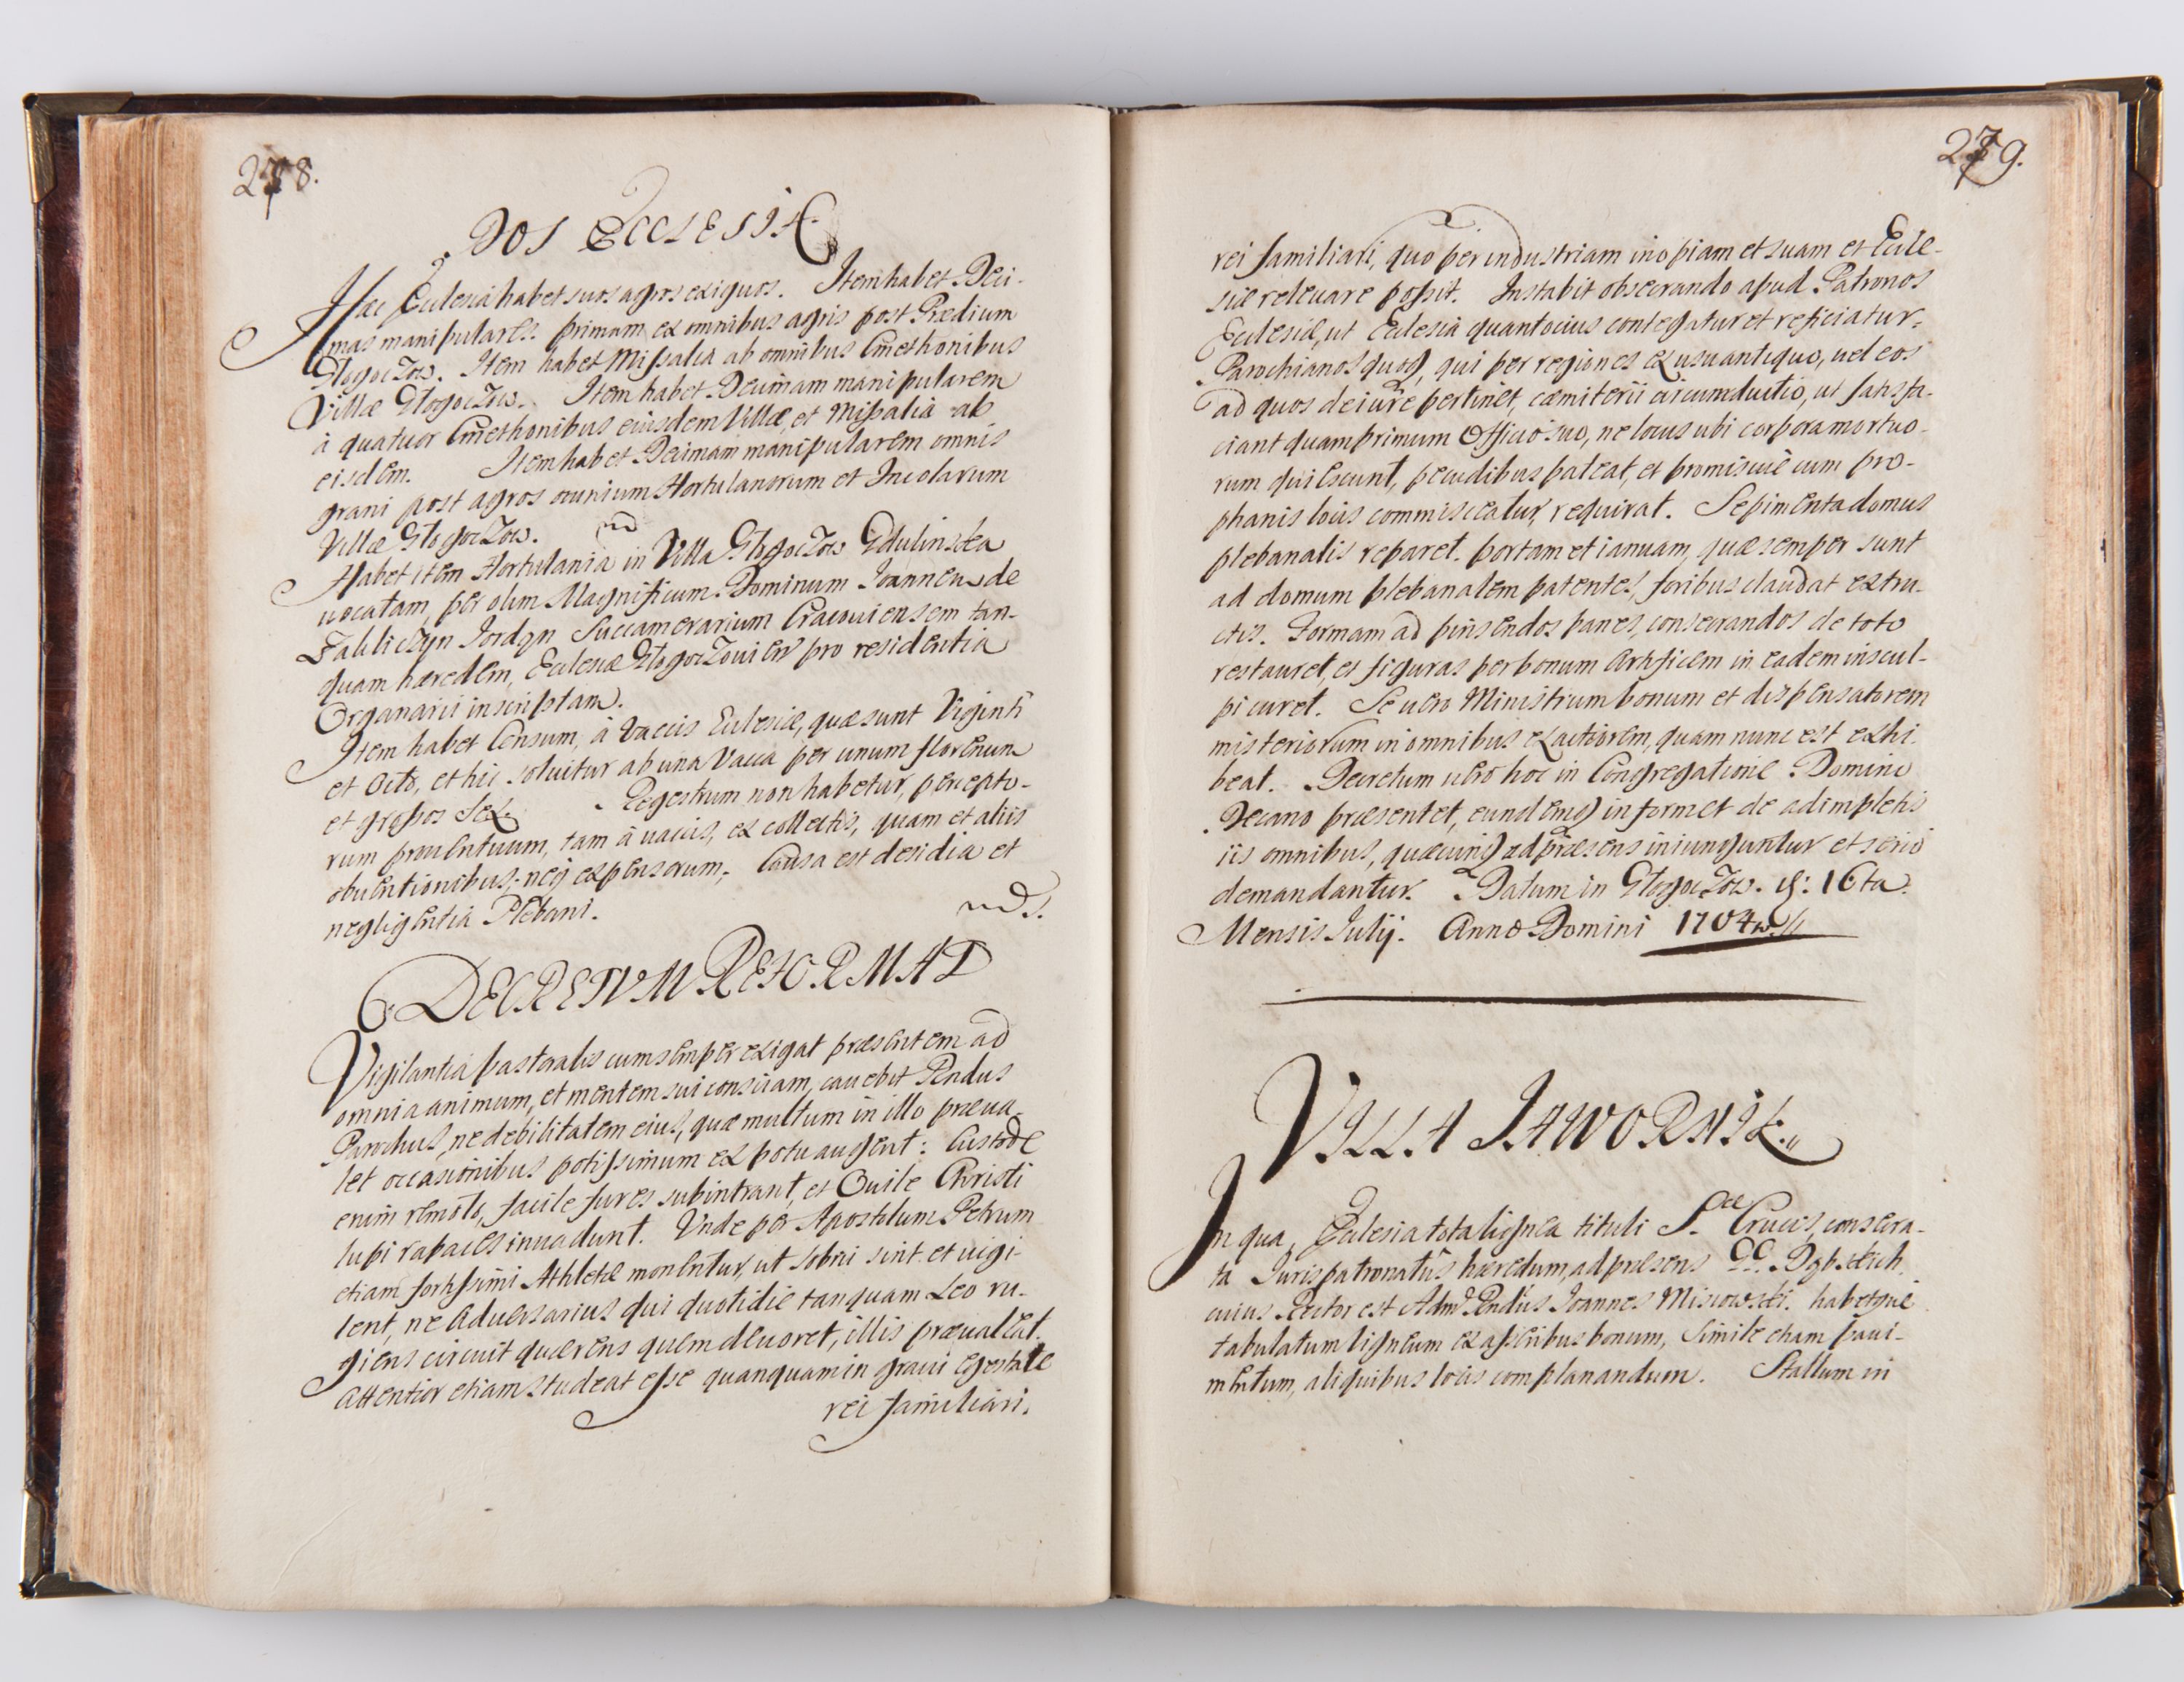 278.
DOS ECCLESIÆ
Hæc Ecclesia habet suos agros exiguos. Item habet Deci-
mas manipulares. primam ex omnibus agris post Prædium
Głogoczow. Item habet Missalia ab omnibus Cmethonibus
Villæ Głogoczow. Item habet Decimam manipularem
à quatuor Cmethonibus eiusdem Villæ, et Missalia ab
eisdem. Item habet Decimam manipularem omnis
grani post agros omnium Hortulanorum et Incolarum
Villæ Głogoczow.
Habet item Hortulania in Villa Głogoczow Gdulinska
uocatam, per olim Magnificum Dominum Joannem de
Zakliczyn Jordan Succamerarium Cracouiensem tan-
quam hæredem, Ecclesiæ Głogoczouien pro residentia
Organarii inscriptam.
Item habet Censum, à Vaccis Ecclesiæ, quæ sunt Viginti
et Octo, et hic soluitur ab una Vacca per unum florenum
et grossos Sex. Regestrum non habetur, percepto-
rum prouentuum, tam à uaccis, ex collectis, quam et aliis
obuentionibus, neq expensorum, Causa est desidia et
negligentia Plebani.
DECRETVM REFORMAT
Vigilantia pastoralis cum semper exigat præsentem ad
omnia animum, et mentem sui consciam, cauebit Rendus
Parochus, ne debilitatem eius, quæ multum in illo præua-
let occasionibus potissimum ex potu augent: Custode
enim remoto, facile fures subintrant, et Ouile Christi
lupi rapaces inuadunt. Vnde per Apostolum Petrum
etiam fortissimi Athletæ monentur, ut sobrii sint et uigi-
lent, ne Aduersarius qui quotidie tanquam Leo ru-
giens circuit quærens quem deuoret, illis præualeat.
Attentior etiam studeat esse quanquam in graui egestate
rei familiari.
279.
rei familiari, quo per industriam inopiam et suam et Eccle-
siæ releuare possit. Instabit obsecrando apud Patronos
Ecclesiæ, ut Ecclesia quantocius contegatur et reficiatur,
Parochianos quoq, qui per regiones ex usu antiquo, uel eos
ad quos de iure pertinet, cæmiterii circumductio, ut satisfa-
ciant quamprimum Officio suo, ne locus ubi corpora mortuo-
rum quiescunt, pecudibus pateat, et promiscuè cum pro-
phanis locis commisceatur, requirat. Sepimenta domus
plebanalis reparet. portam et ianuam, quæ semper sunt
ad domum plebanalem patentes, foribus claudat extru-
ctis. Formam ad pinsendos panes consecrandos de toto
restauret, et figuras per bonum Artificem in eadem inscul-
pi curet. Se uero Ministrum bonum et dispensatorem
misteriorum in omnibus exactiorem, quam nunc est exhi-
beat. Decretum uero hoc in Congregatione Domino
Decano præsentet, eundemq informet de adimpletis
iis omnibus, quæcunq ad præsens iniunguntur et serio
demandantur. Datum in Głogoczow. d: 16ta.
Mensis Julij. Anno Domini 1704.
VILLA JAWORNIK
In qua, Ecclesia tota lignea tituli S.æ Crucis, consecra-
ta Jurispatronatûs hæredum, ad præsens DD. Dębskich
cuius Rector est Admd. Rendus Joannes Misiowski. habetque
tabulatum ligneum ex asseribus bonum, simile etiam paui-
mentum, aliquibus locis complanandum. Stallum in